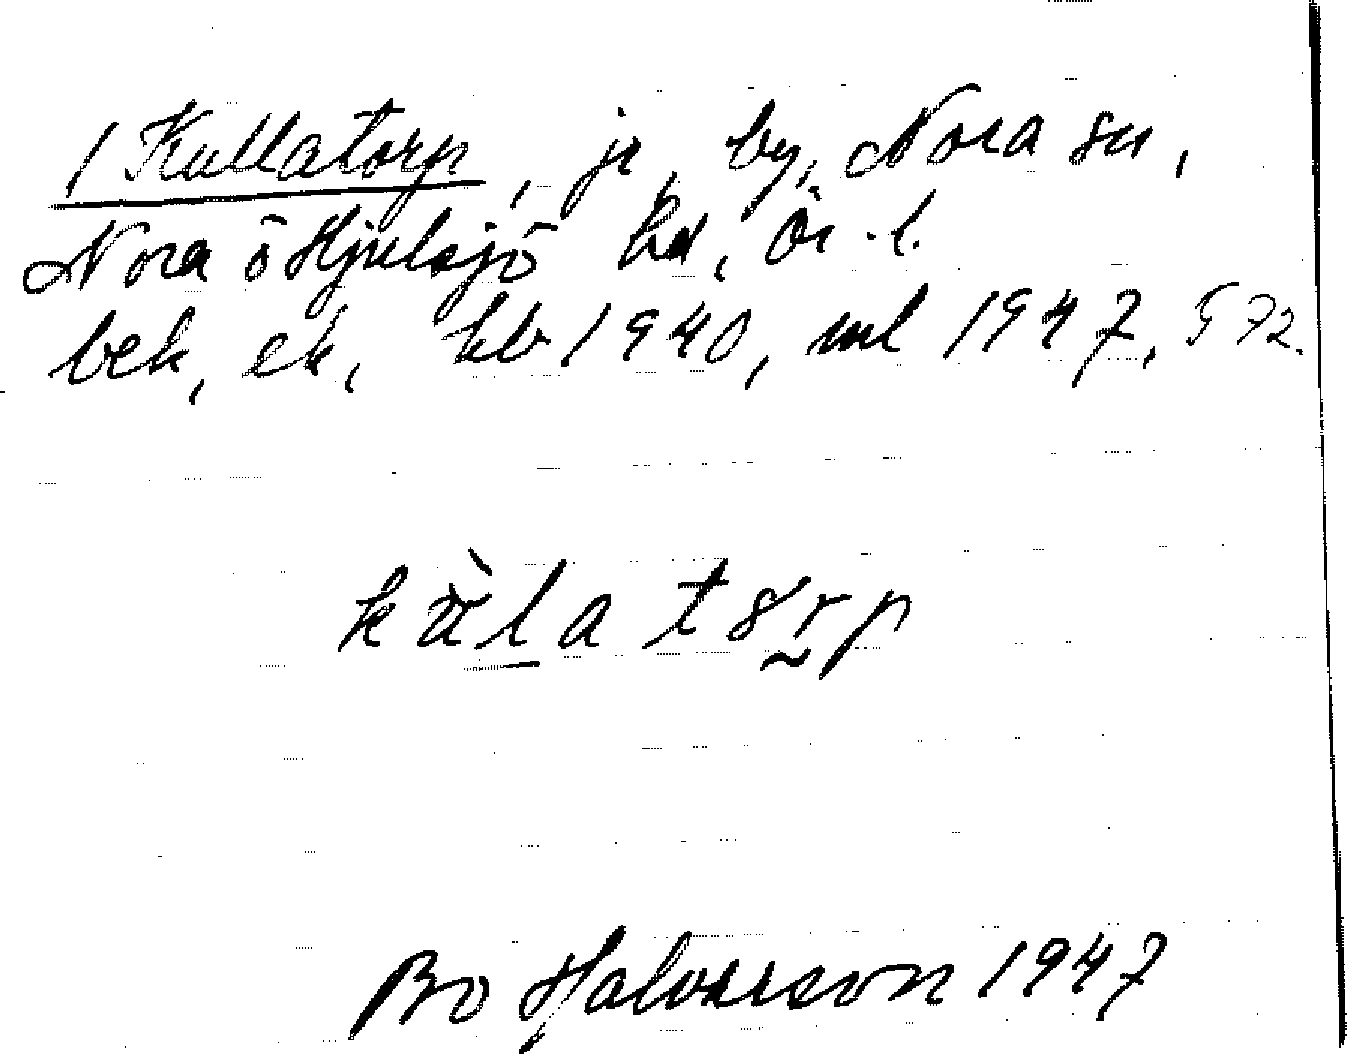 / Kullatorp, jr, by, Nora sn,
Nora o Hjulsjö hd, Ör. l.
bek, ek, kb 1940, ml 1947, T 72.
Bo Halvarsson 1947